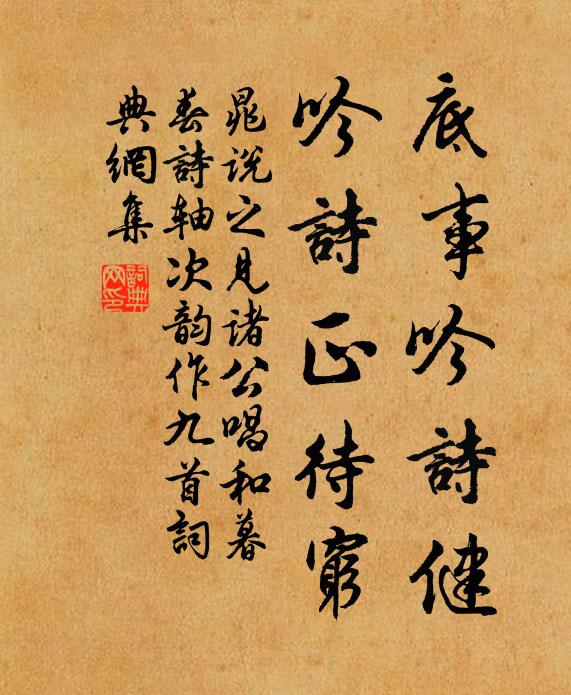 底事吟詩健
吟詩正待窮
晁说之見诸公唱和暮
春詩轴次韵作九首詞
典網集
詞典
网印